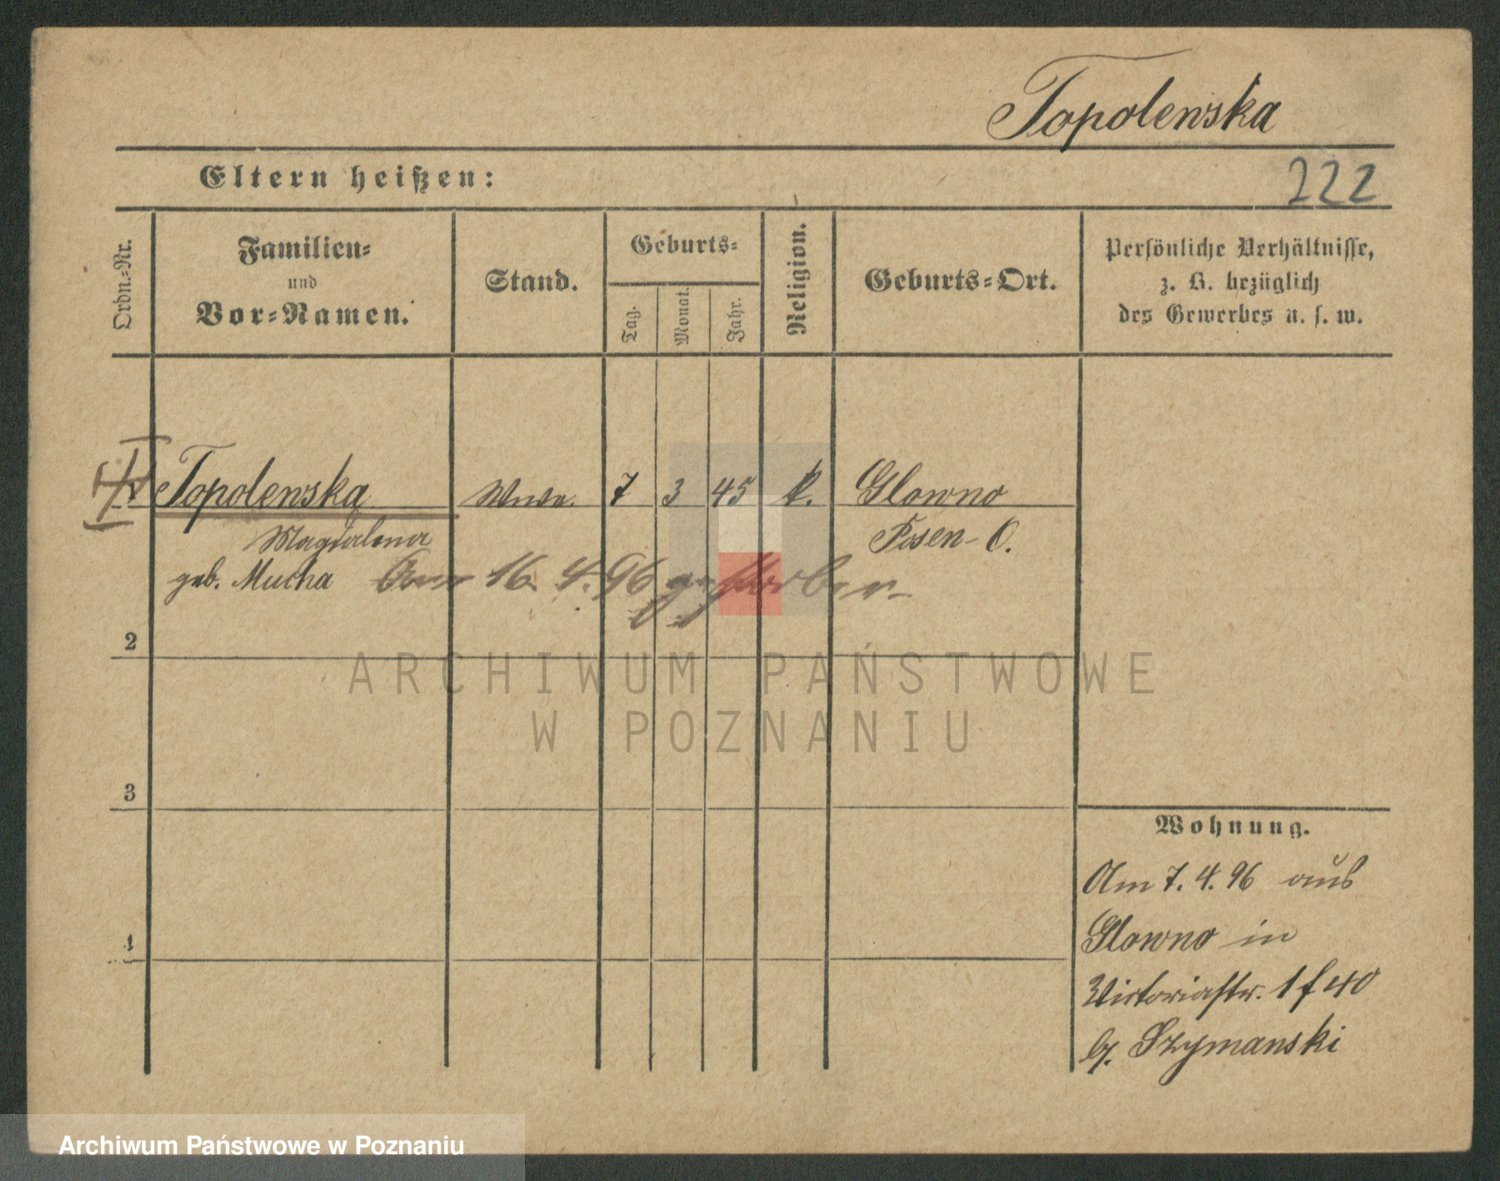 Topolenska
Eltern heißen:
222
Ordn.-Nr.
Familien-
und
Vor-Namen.
Stand.
Geburts-
Tag.
Monat.
Jahr.
Religion.
Geburts-Ort.
Persönliche Verhältnisse,
z. B. bezüglich
des Gewerbes u. s. w.
1 Topolenska Wwe. 7 3 45 k. Glowno
Magdalena Posen-O.
geb. Mucha Am 16. 4. 96 gestorben.
2
3
4
Wohnung.
Am 7. 4. 96 aus
Glowno in
Victoriastr. 1 f 40
b. Szymanski
ARCHIWUM PAŃSTWOWE
W POZNANIU
Archiwum Państwowe w Poznaniu